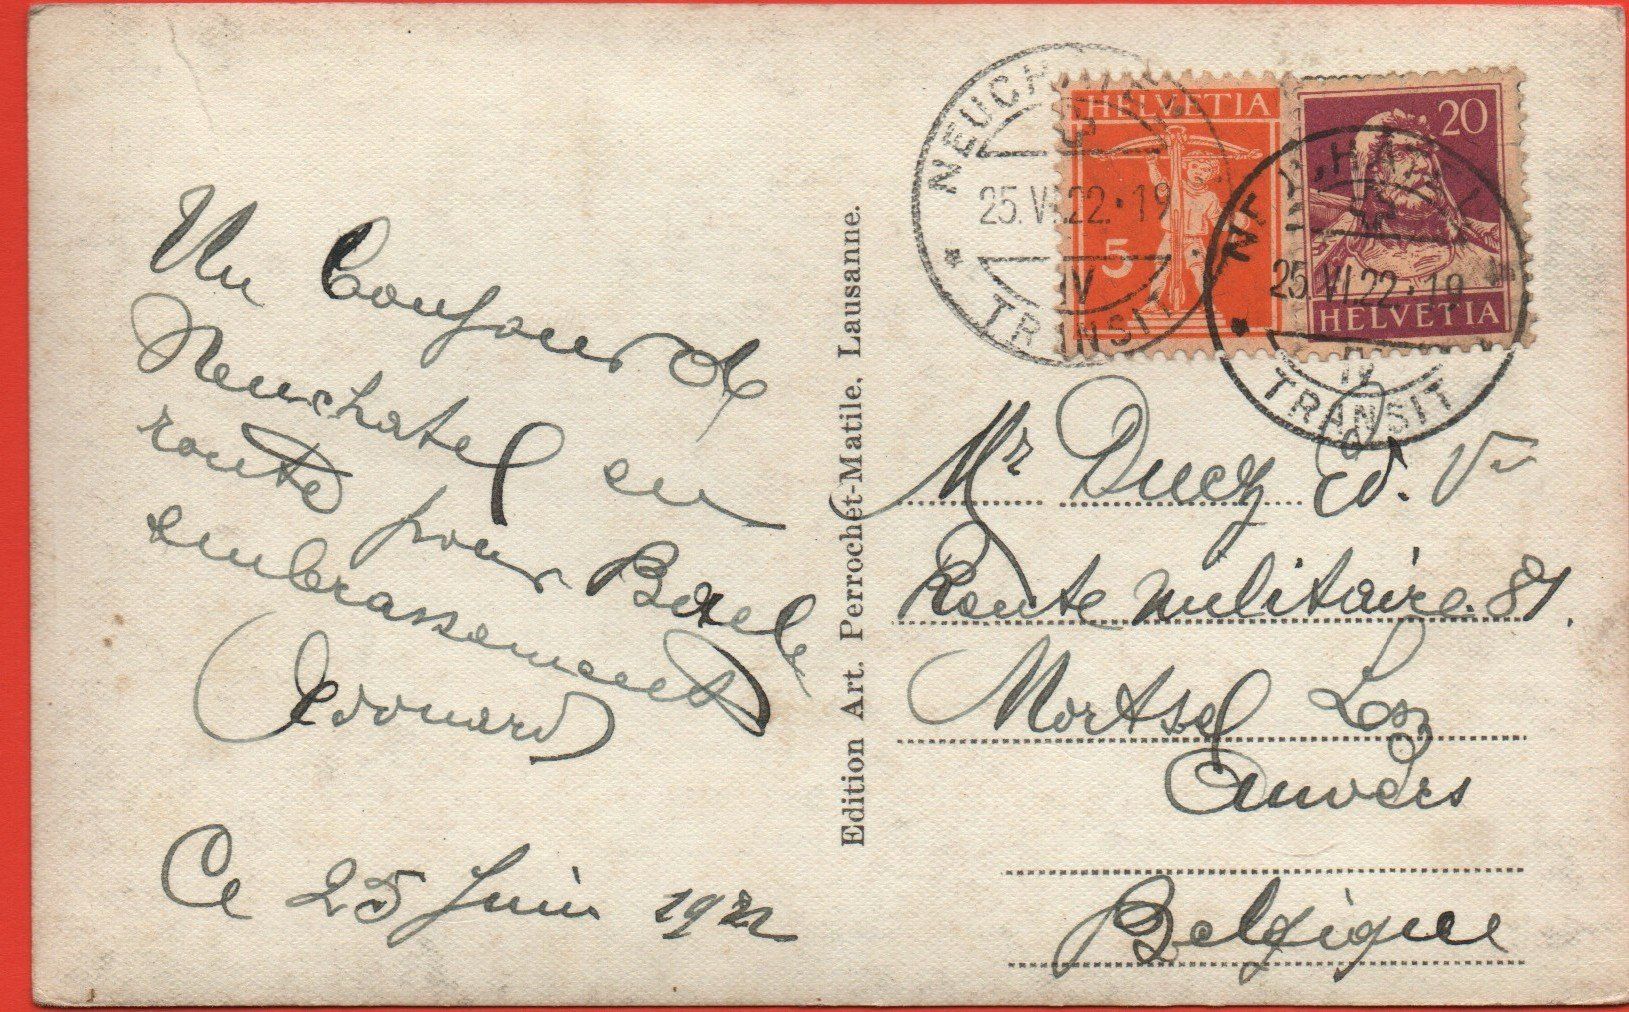 Un Bonjour de
Neuchatel en
route pour Basel
embrassement
Edouard
Ce 25 Juin 1922
Edition Art. Perrochet-Matile, Lausanne.
NEUCHATEL
25.VI.22.19
IV
TRANSIT
HELVETIA
5
20
HELVETIA
NEUCHATEL
25.VI.22.19
IV
TRANSIT
Mr Ed.
Route militaire. 81.
Mortsel Lez
Anvers
Belgique